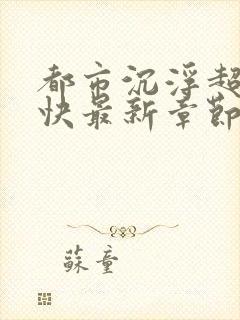 都市沉浮超
快最新章節
蘇童